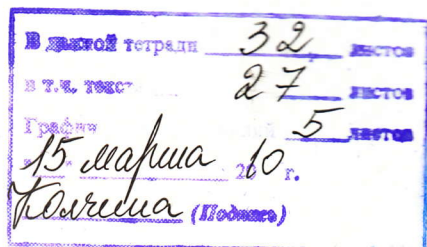 В данной тетради 32 листов
в т.ч. текста 27 листов
Графики 5 листов
15 марта 2010 г.
(Подпись)